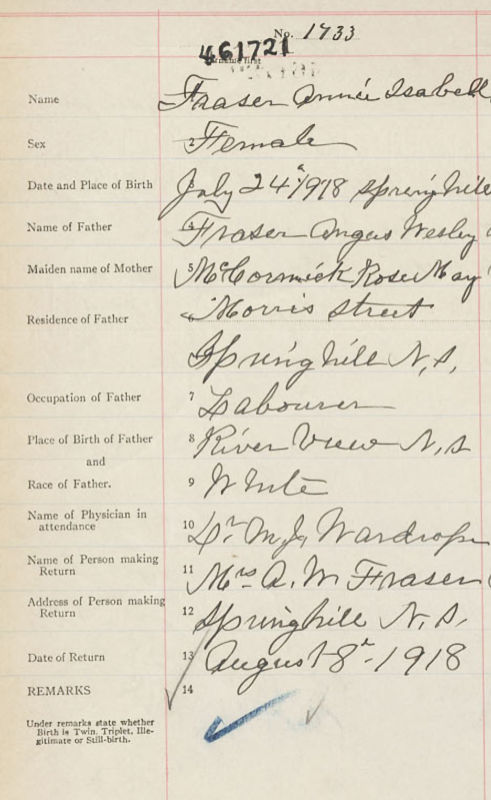 No. 1733
461721
Name Fraser Annie Isabell
Sex 2 Female
Date and Place of Birth July 24th 1918 Springhill
Name of Father 4 Fraser Angus Wesley
Maiden name of Mother 5 McCormick Rose May
Residence of Father 6 Morris Street
Springhill N.S.
Occupation of Father 7 Labourer
Place of Birth of Father 8 River View N.S
and
Race of Father. 9 White
Name of Physician in
attendance 10 Dr M.J. Wardrope
Name of Person making
Return 11 Mrs A. W Fraser
Address of Person making
Return 12 Springhill N.S.
Date of Return 13 August 8th 1918
REMARKS 14
Under remarks state whether
Birth is Twin, Triplet, Ille-
gitimate or Still-birth.